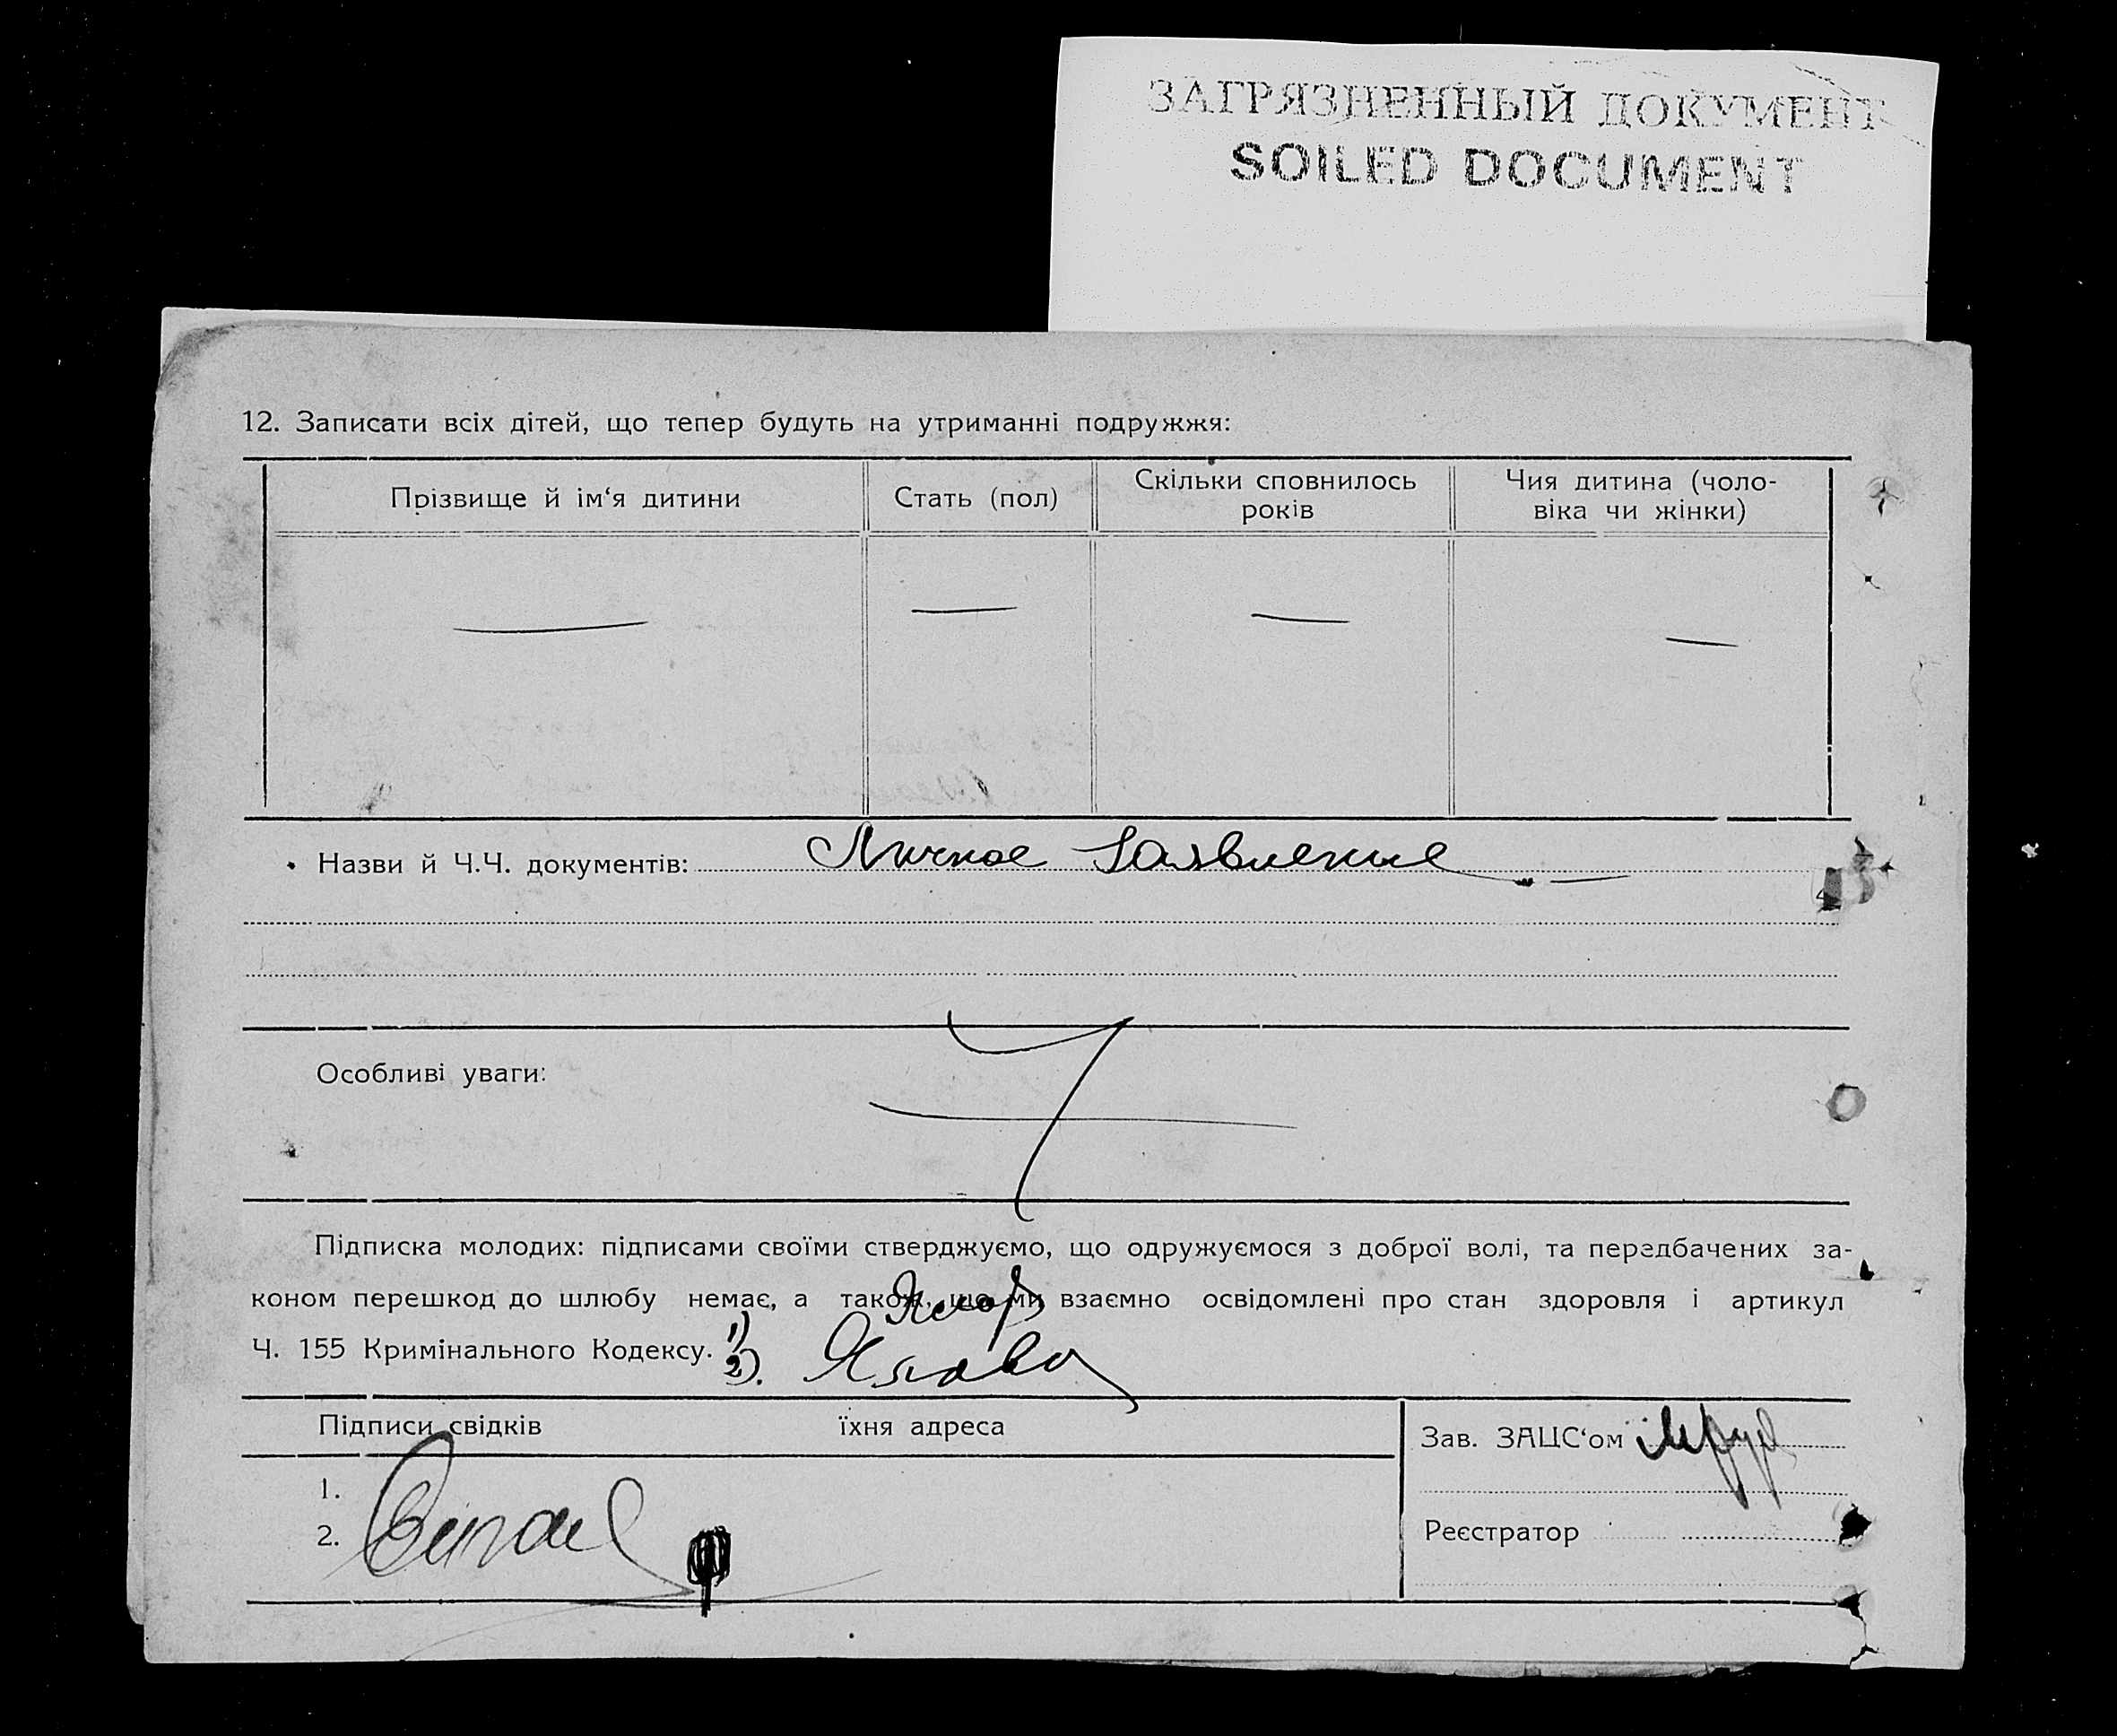 ЗАГРЯЗНЕННЫЙ ДОКУМЕНТ
SOILED DOCUMENT
12. Записати всіх дітей, що тепер будуть на утриманні подружжя:
Прізвище й ім‘я дитини
Стать (пол)
Скільки сповнилось
років
Чия дитина (чоло-
віка чи жінки)
Назви й Ч.Ч. документів: Личное Заявление
Особливі уваги:
Підписка молодих: підписами своїми стверджуємо, що одружуємося з доброї волі, та передбачених за-
коном перешкод до шлюбу немає, а також, що ми взаємно освідомлені про стан здоровля і артикул
Ч. 155 Кримінального Кодексу. 1)
2).
Підписи свідків
їхня адреса
1.
2.
Зав. ЗАЦС‘ом
Реєстратор